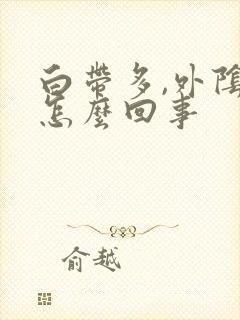 白帶多,外陰
怎麼回事
俞越